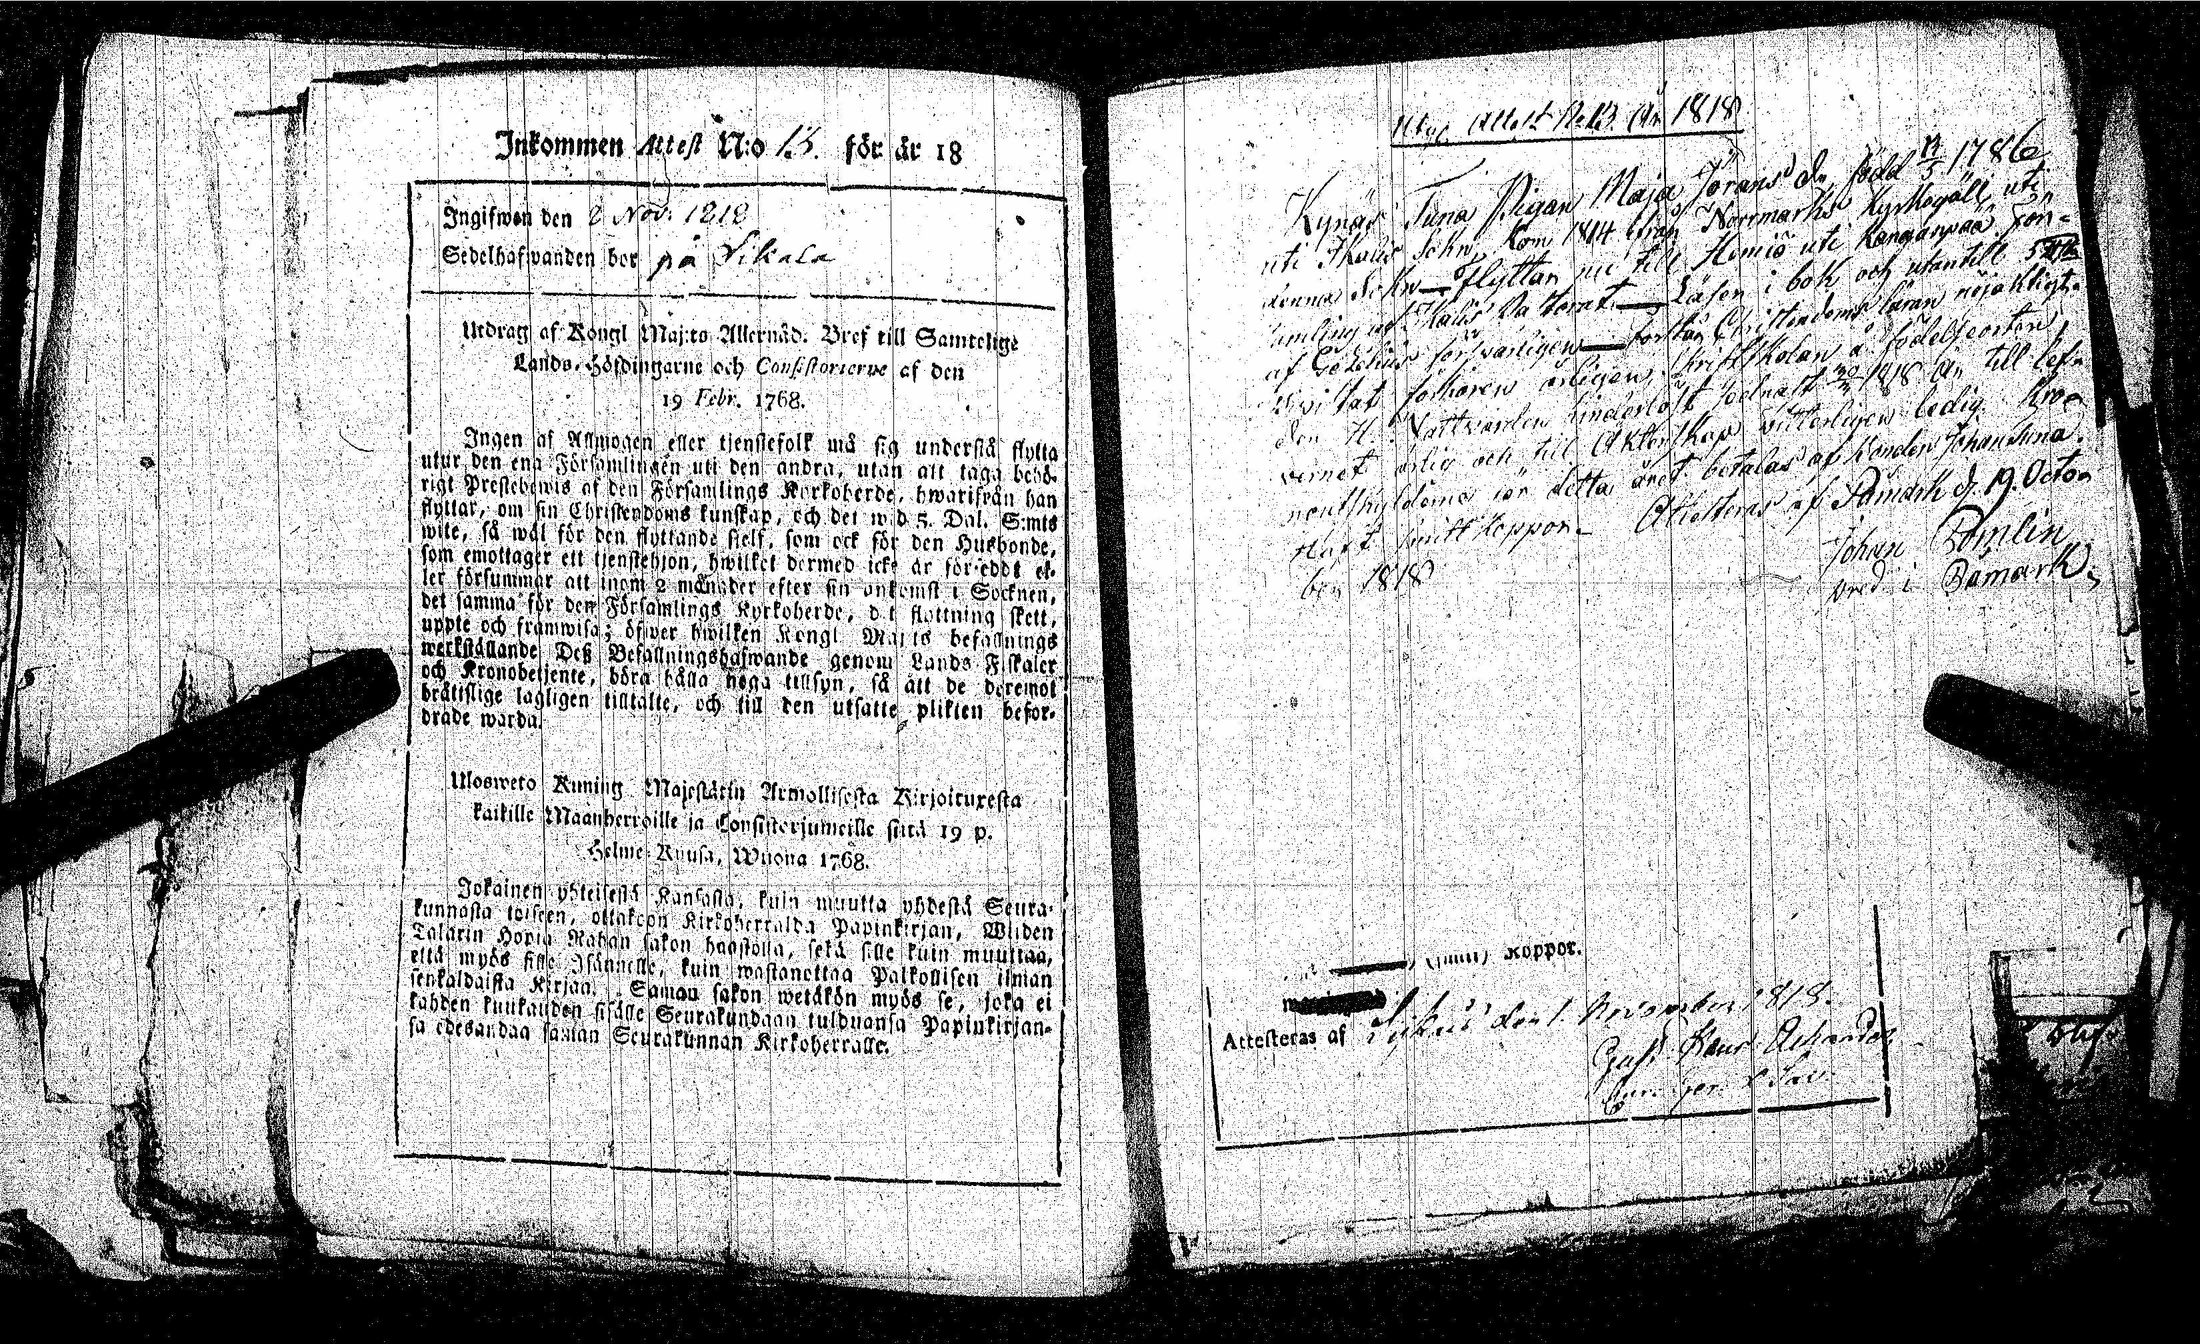 Inkommen Attest N:o 13. för år 18
Ingifwen den 2 Nov: 1818
Sedelhafwanden bor på Sikala
Utdrag af Kongl Maj:ts Allernåd. Bref till Samtelige
Lands-Höfdingarne och Consistorierne af den
19 Febr. 1768.
Ingen af Allmogen eller tjenstefolk må sig understå flytta
utur den ena Församlingen uti den andra, utan att taga behö-
rigt Prestebewis af den Församlings Kyrkoherde, hwarifrån han
flyttar, om sin Christendoms kunskap, och det wid 5. Dal. S:mts
wite, så wäl för den flyttande sielf, som ock för den Husbonde,
som emottager ett tjenstehjon, hwilket dermed icke är förseddt el-
ler försummar att inom 2 månader efter sin ankomst i Socknen,
det samma för den Församlings Kyrkoherde, dit flyttning skett,
uppte och framwisa; öfwer hwilken Kongl Maj:ts befallnings
werkställande Deß Befallningshafwande genom Lands Fiskaler
och Kronobetjente, böra hålla noga tillsyn, så att de deremot
brättslige lagligen tilltalte, och till den utsatte plikten befor-
drade warda.
Ulosweto Kuning Majestätin Armollisesta Kirjoituxesta
kaikille Maanherroille ja Consistorjumeille siitä 19 p.
Helme-Kuusa, Wuona 1768.
Jokainen yhteisestä Kansasta, kuin muutta yhdestä Seura-
kunnasta toiseen, ottakoon Kirkoherralda Papinkirjan, Wiiden
Talarin Hopia Rahan sakon haastolla, sekä sille kuin muuttaa,
että myös sille Isännälle, kuin wastanottaa Palkollisen ilman
senkaldaista Kirjan. Saman sakon wetäkön myös se, joka ei
kahden kuukauden sisälle Seurakundaan tulduansa Papinkirjan-
sa edesandaa saman Seurakunnan Kirkoherralle.
Attest N:o 13. År 1818
Kynäs Tuna Pigan Maja Jörans dr född 1786
uti Ikalis Sokn, kom 1814 från Norrmarks Kyrkogäll uti
denna Sokn — Flyttar nu till Homiö uti Kanganpää För-
samling af Ikalis Pastorat — Läser i bok och utantill
af Gezelius försvarligen — förstår Christendoms läran nöjaktigt.
förhören årligen, Skriftskolan å födelseorten,
den H: Nattvarden hinderlöst 1818 Är till lef-
vernet ärlig och till Äktenskap vitterligen ledig. Kro-
noutskylderna för detta året betalas af bonden Johan Tuna.
Haft Smittkoppor. Attesteras af Påmark d. 19. Octo-
ber 1818
Johan Bomlin
pred. i Påmark.
koppor.
Attesteras af den 1 November 1818.